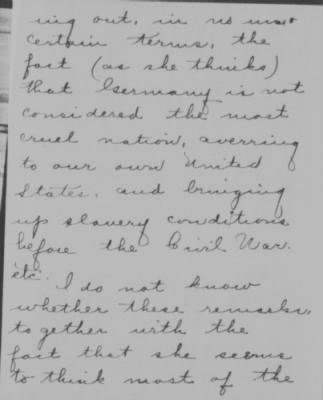 ing out, in no un-
certain terms, the
fact (as she thinks)
that Germany is not
considered the most
cruel nation, averring
to our own United
States. and bringing
up slavery conditions
before the Civil War.
etc. I do not know
whether these remarks,
to gether with the
fact that she seems
to think most of the